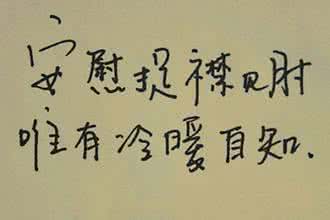 安慰捉襟见肘
唯有冷暖自知.